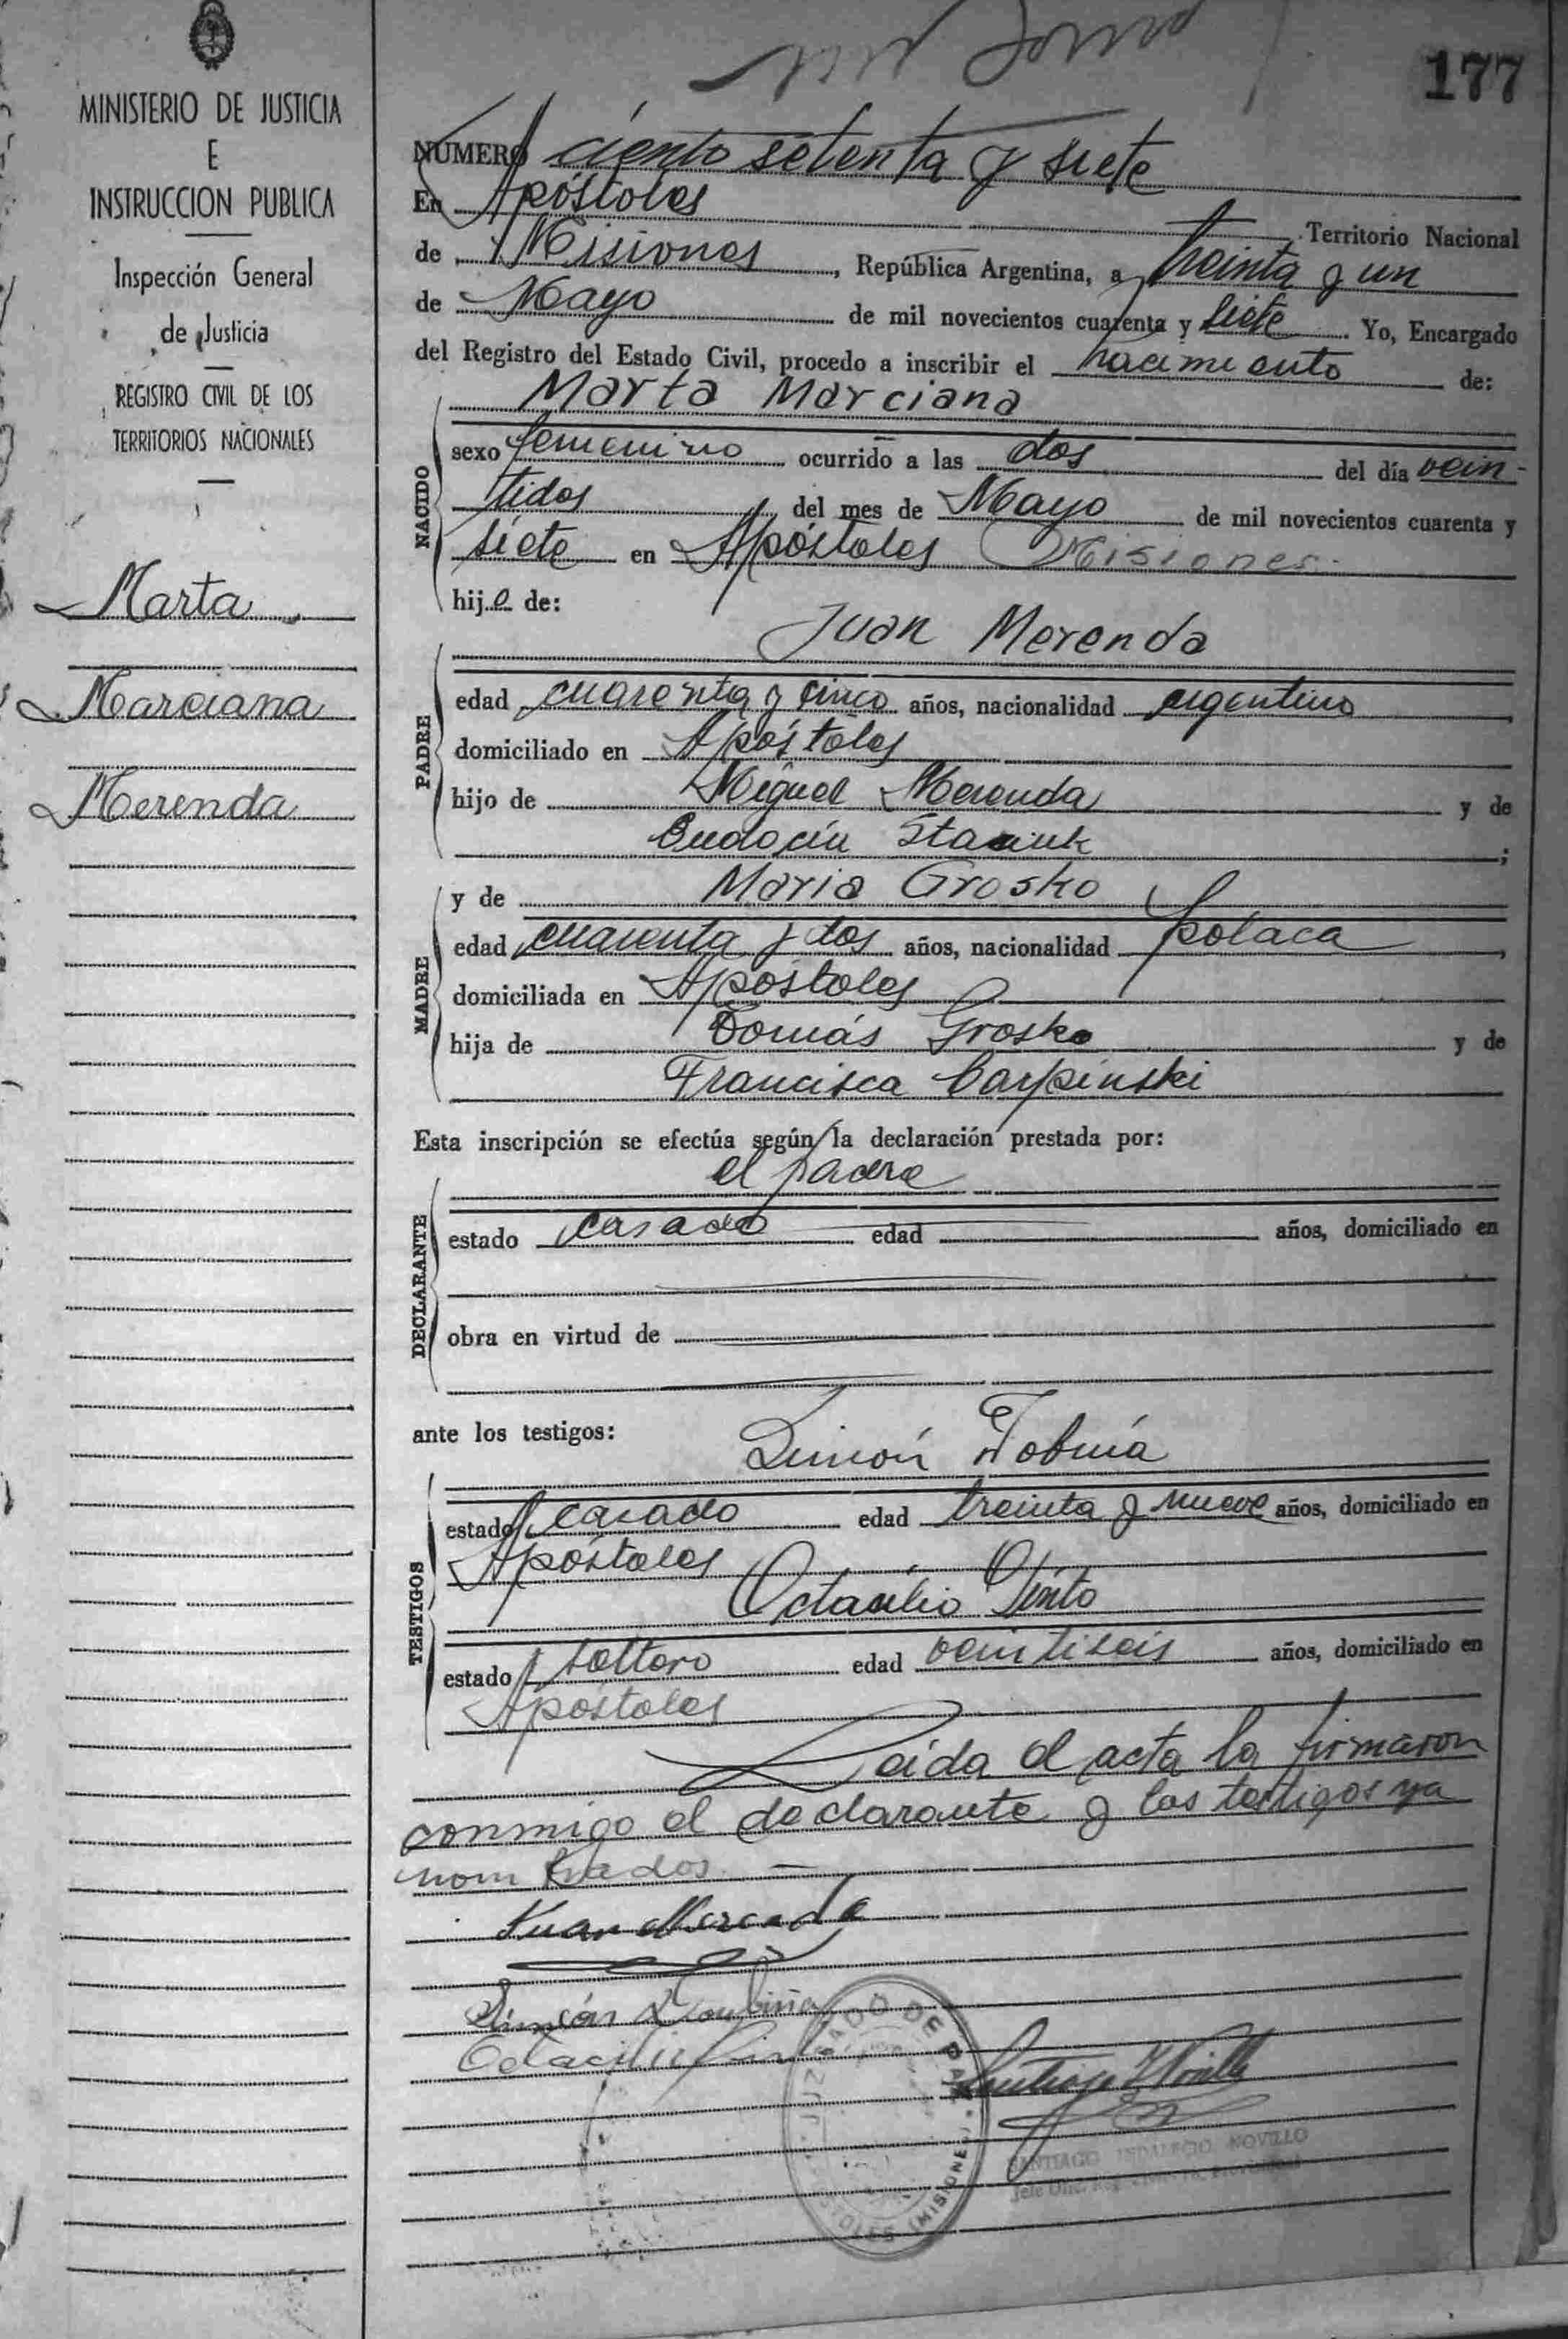 177
MINISTERIO DE JUSTICIA
E
INSTRUCCION PUBLICA
Inspección General
de Justicia
REGISTRO CIVIL DE LOS
TERRITORIOS NACIONALES
Marta
Marciana
Merenda
NUMERO ciento setenta y siete
En Apóstoles Territorio Nacional
de Misiones, República Argentina, a treinta y un
de Mayo de mil novecientos cuarenta y siete. Yo, Encargado
del Registro del Estado Civil, procedo a inscribir el nacimiento de:
Marta Marciana
NACIDO
sexo femenino ocurrido a las dos del día vein-
tidos del mes de Mayo de mil novecientos cuarenta y
siete en Apóstoles Misiones.
hija de:
Juan Merenda
PADRE
edad cuarenta y cinco años, nacionalidad argentino,
domiciliado en Apóstoles
hijo de Miguel Merenda y de
Eudocia Stasiuk;
MADRE
y de Maria Grosko
edad cuarenta y dos años, nacionalidad polaca,
domiciliada en Apóstoles
hija de Tomás Grosko y de
Francisca Carpinski
Esta inscripción se efectúa según la declaración prestada por:
el padre
DECLARANTE
estado casado edad años, domiciliado en
obra en virtud de
ante los testigos:
Simón
TESTIGOS
estado casado edad treinta y nueve años, domiciliado en
Apóstoles
Octacilio Pinto
estado soltero edad veintiseis años, domiciliado en
Apóstoles
Leida el acta la firmaron
conmigo el declarante y los testigos ya
nombrados. —
Juan Merenda
Simón
Octacilio Pinto
JUZGADO DE PAZ
APOSTOLES (MISIONES)
SANTIAGO INDALECIO NOVILLO